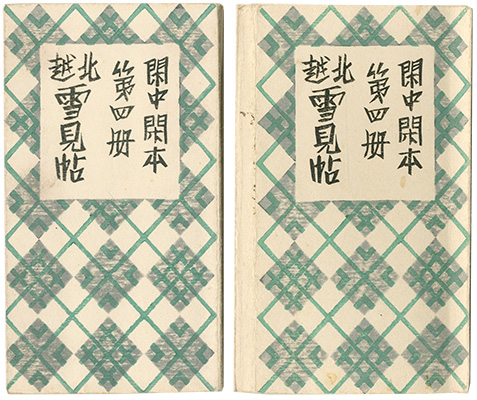 閑中閑本
第四册
北越
雪見帖
閑中閑本
第四册
北越
雪見帖